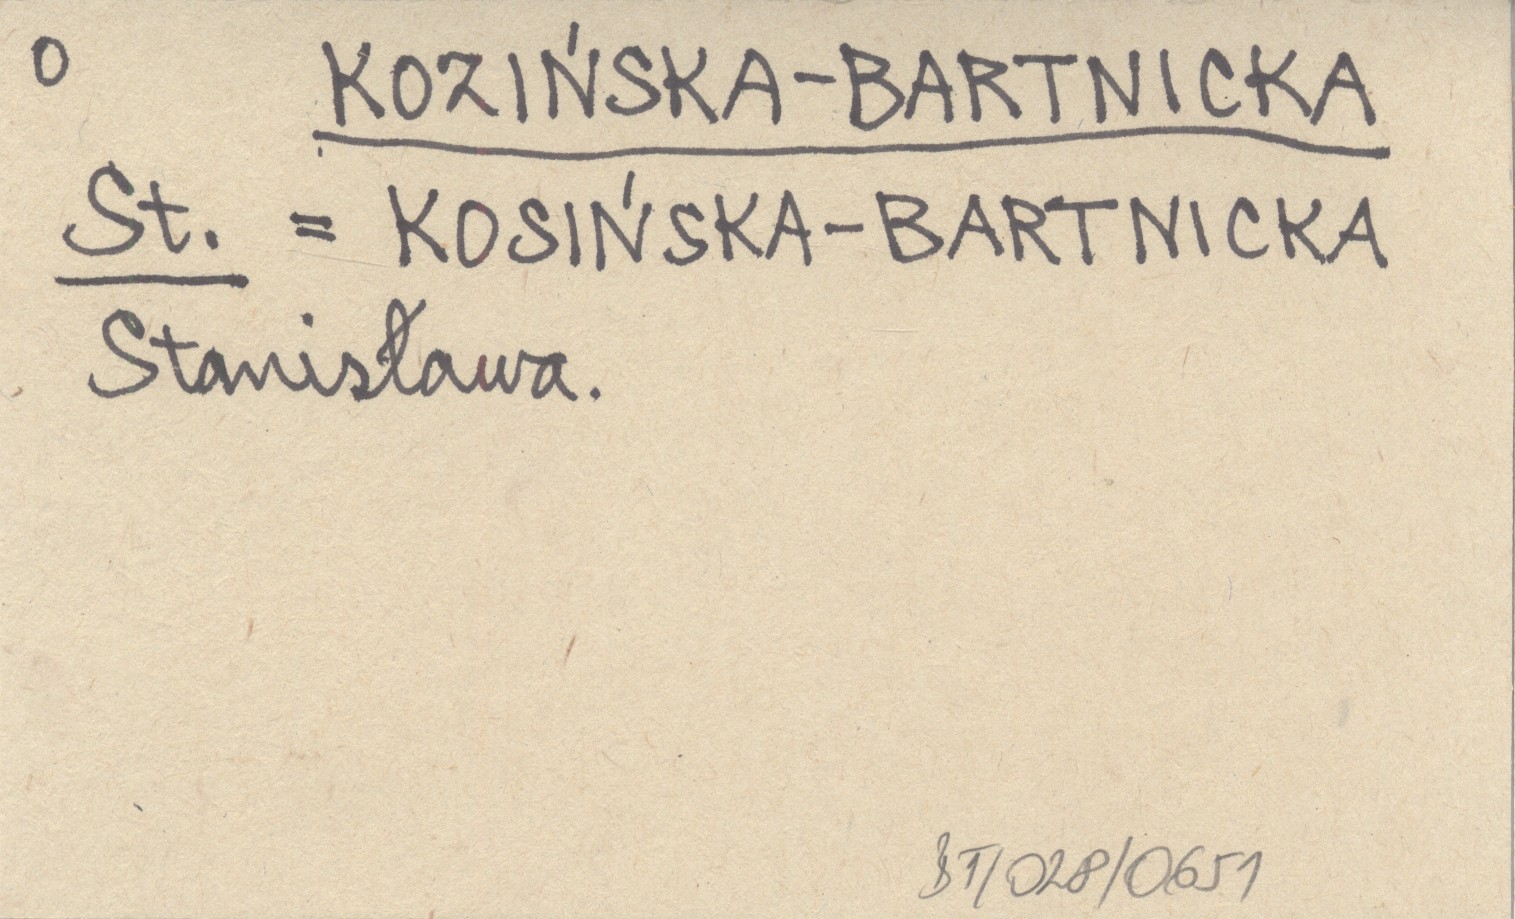 O KOZIŃSKA-BARTNICKA
St. = KOSIŃSKA-BARTNICKA
Stanisława.
BT/028/0651